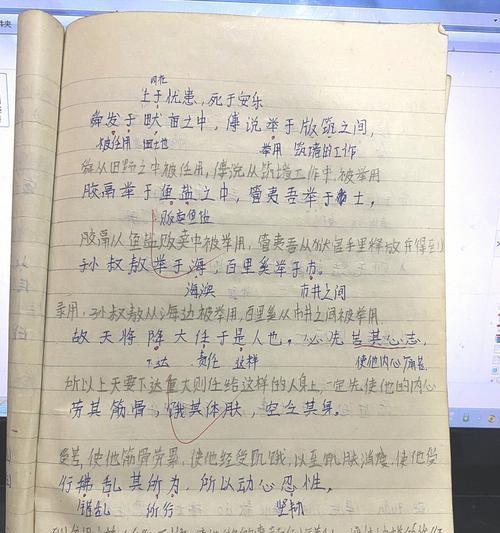 生于忧患，死于安乐
舜发于畎亩之中，傅说举于版筑之间，
被任用 田地 举用 筑墙的工作
舜从田野之中被任用，傅说从筑墙工作中被举用
胶鬲举于鱼盐之中，管夷吾举于士，
贩卖鱼盐
胶鬲从鱼盐贩卖中被举用，管夷吾从狱官手里释放并得到
孙叔敖举于海，百里奚举于市。
海滨 市井之间
录用，孙叔敖从海边被举用，百里奚从市井之间被举用
故天将降大任于是人也，必先苦其心志，
下达 责任 这样 使他内心痛苦
所以上天要下达重大则任给这样的人身上，一定先使他的内心
劳其筋骨，饿其体肤，空乏其身。
受苦，使他筋骨劳累，使他经受饥饿，以至肌肤消瘦，使他受
行拂乱其所为，所以动心忍性，
错乱 所行 坚韧